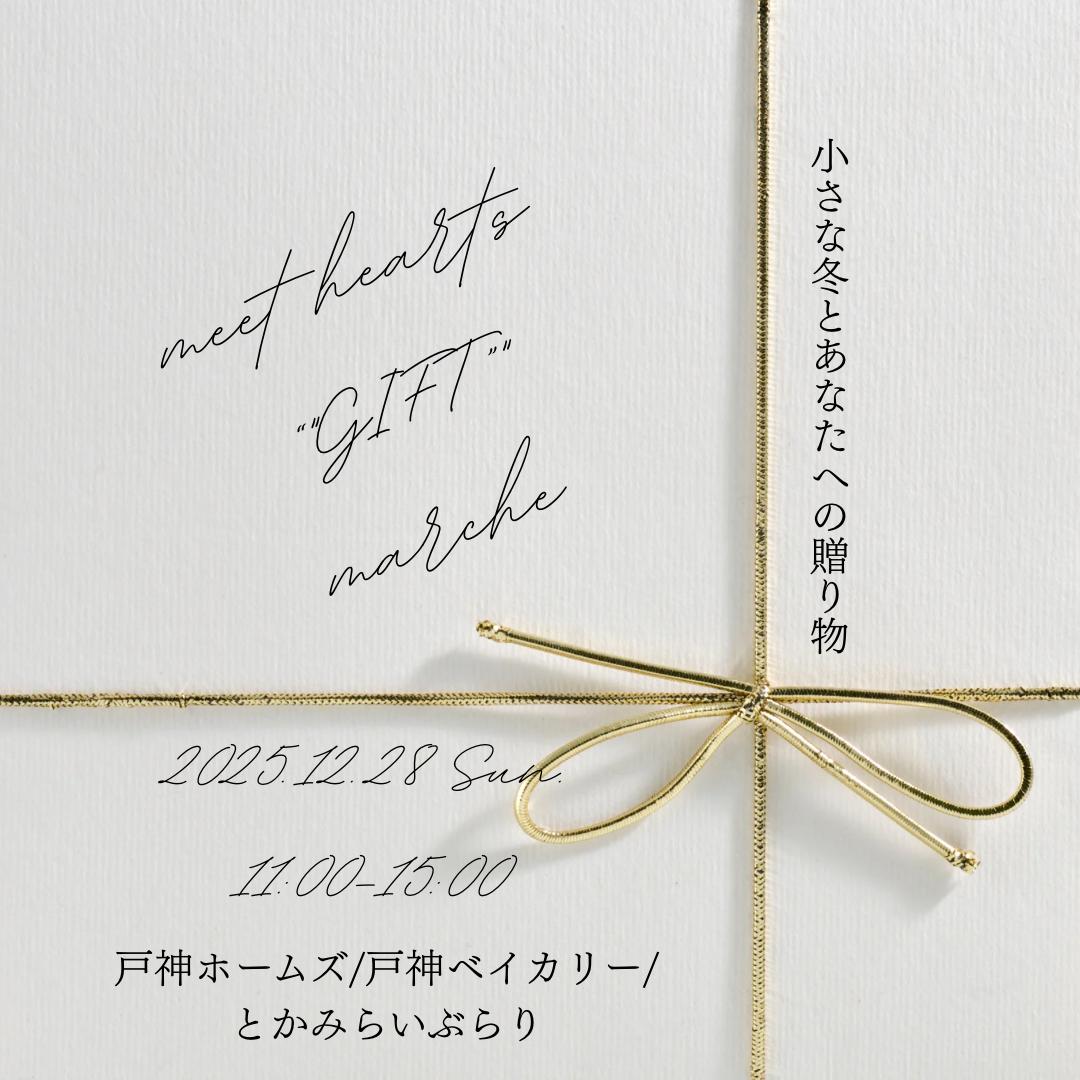 meet hearts
""GIFT""
marche
小さな冬とあなたへの贈り物
2025.12.28 Sun.
11:00-15:00
戸神ホームズ/戸神ベイカリー/
とかみらいぶらり